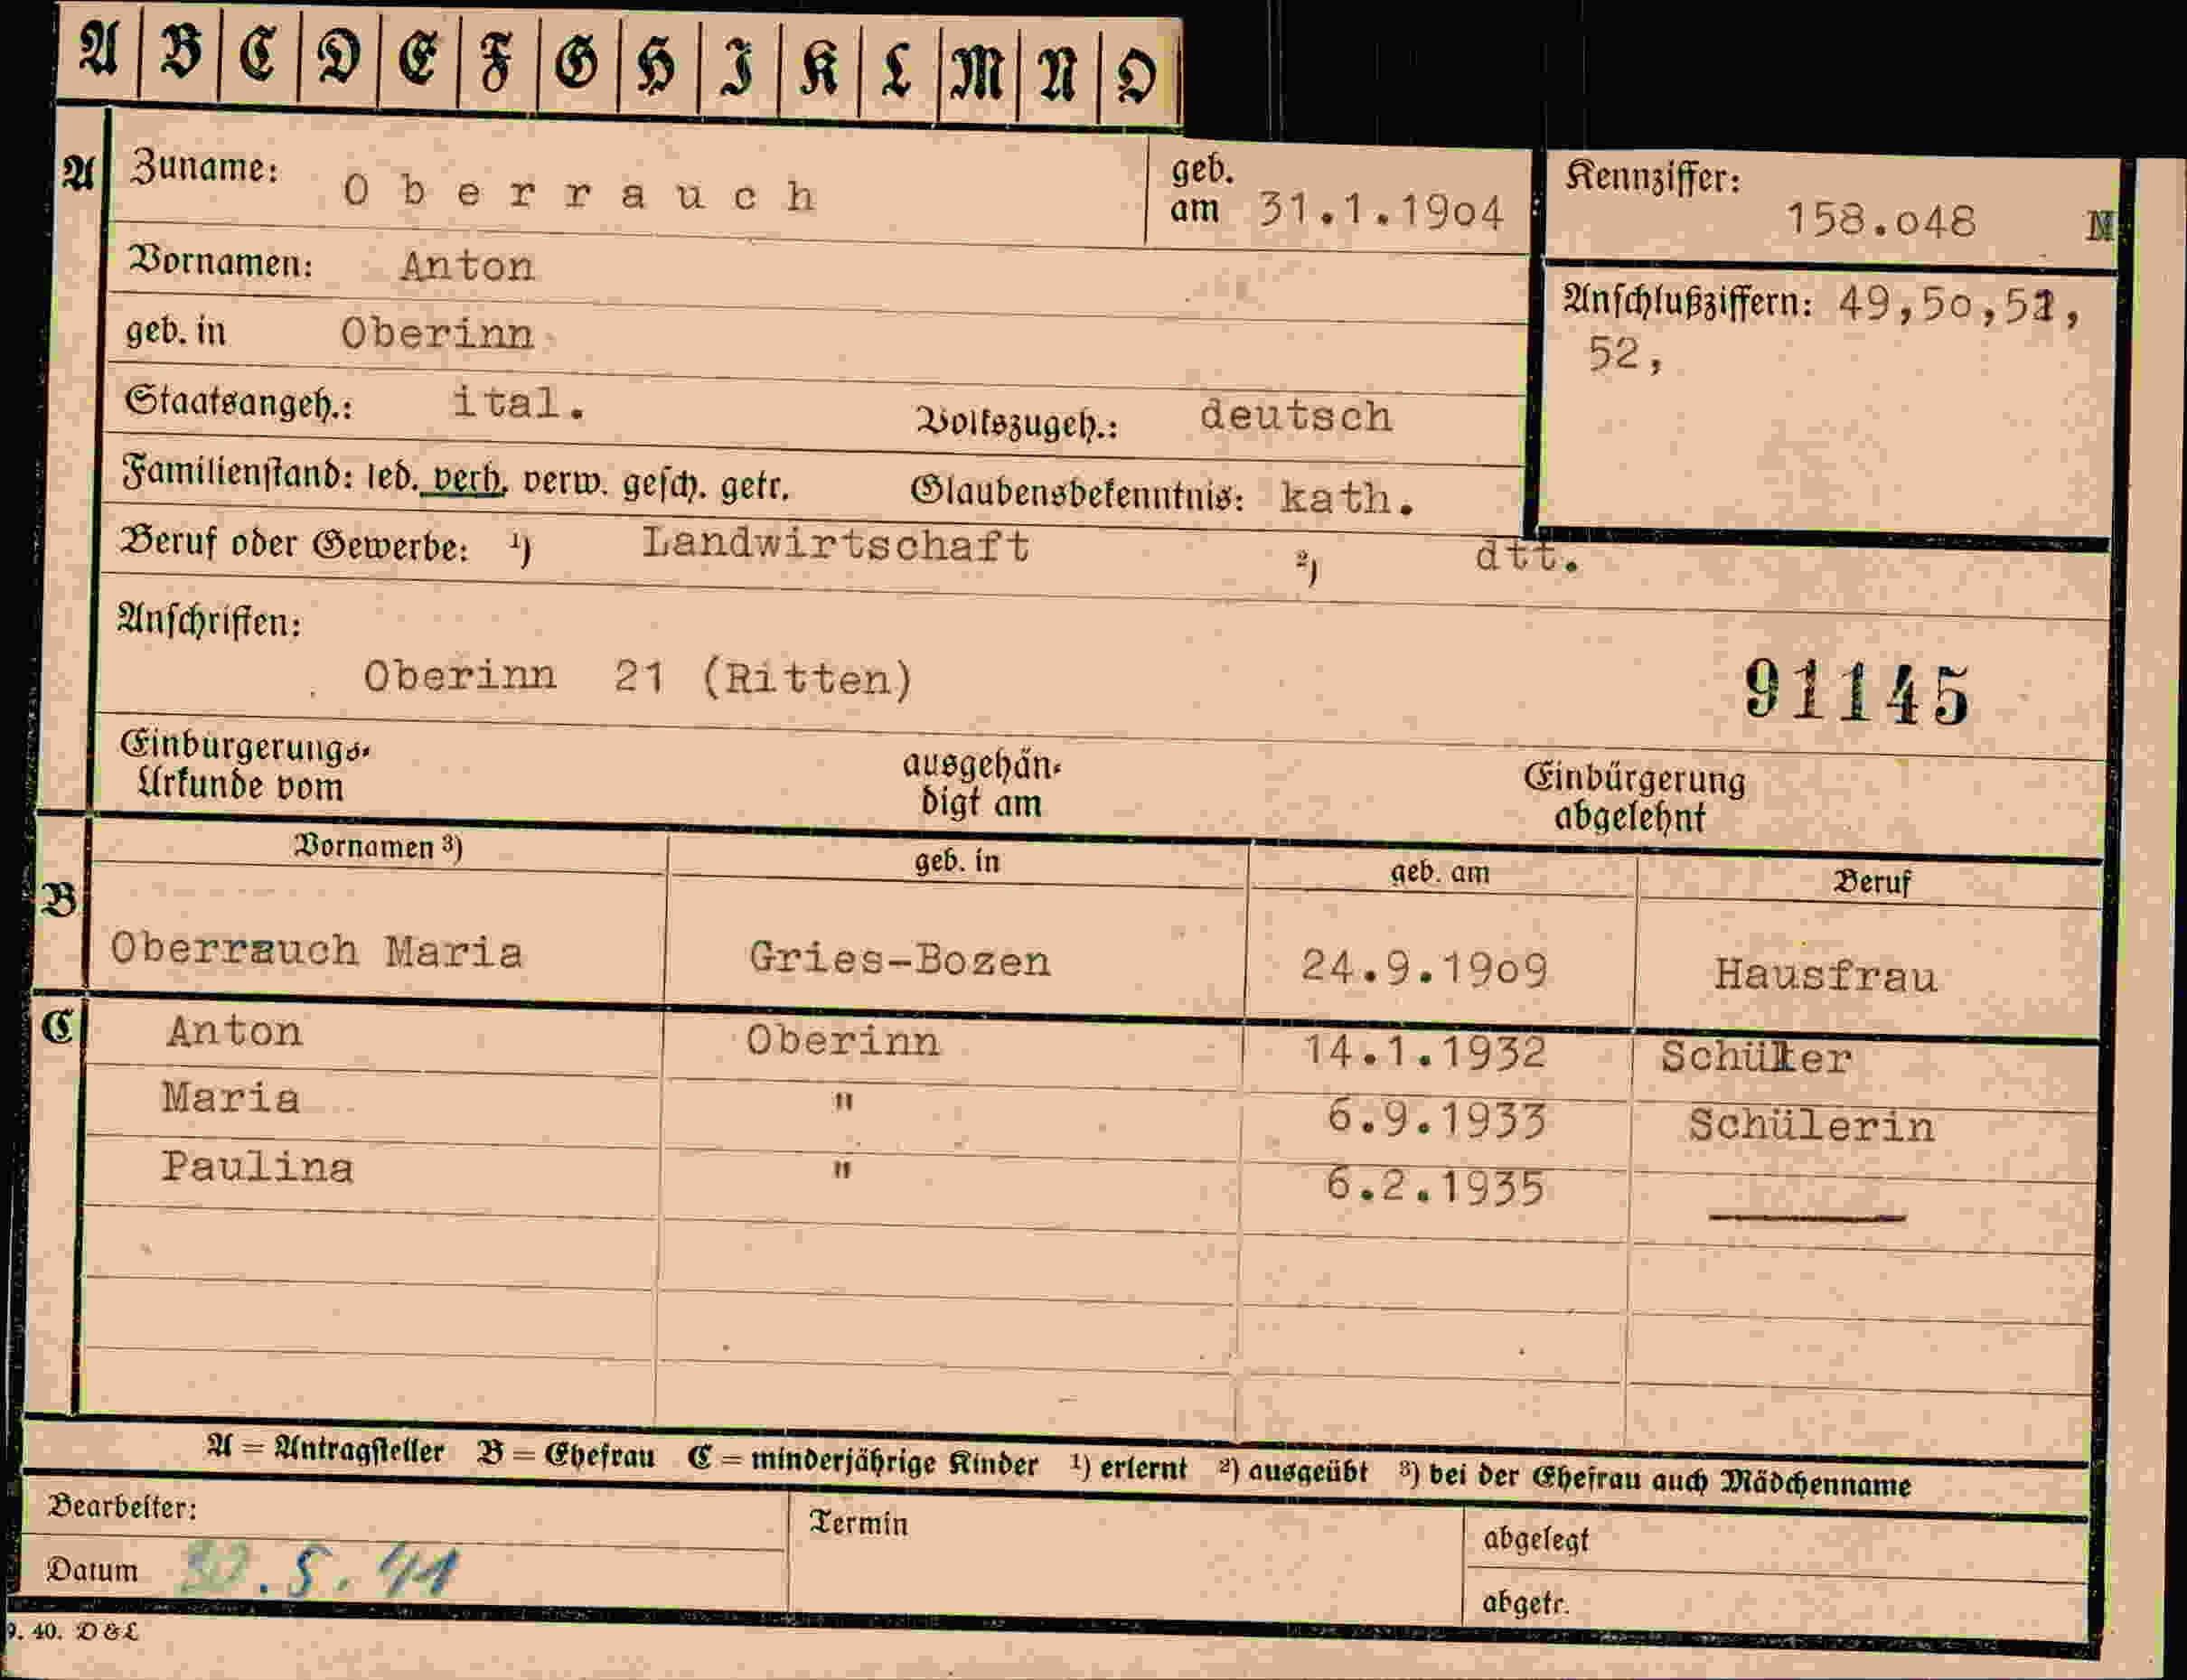 A B C D E F G H I K L M N O
A Zuname: Oberrauch geb. am 31.1.1904 Kennziffer: 158.048 N
Vornamen: Anton
Anschlußziffern: 49,50,51,
52,
geb. in Oberinn
Staatsangeh.: ital. Volkszugeh.: deutsch
Familienstand: led. verh. verw. gesch. getr. Glaubensbekenntnis: kath.
Beruf oder Gewerbe: ¹) Landwirtschaft ²) dtt.
Anschriften:
Oberinn 21 (Ritten) 91145
Einbürgerungs-Urkunde vom ausgehändigt am Einbürgerung abgelehnt
Vornamen ³) geb. in geb. am Beruf
B
Oberrauch Maria Gries-Bozen 24.9.1909 Hausfrau
C Anton Oberinn 14.1.1932 Schüler
Maria " 6.9.1933 Schülerin
Paulina " 6.2.1935
A = Antragsteller B = Ehefrau C = minderjährige Kinder ¹) erlernt ²) ausgeübt ³) bei der Ehefrau auch Mädchenname
Bearbeiter: Termin abgelegt
Datum 30.5.41 abgetr.
9. 40. D & L